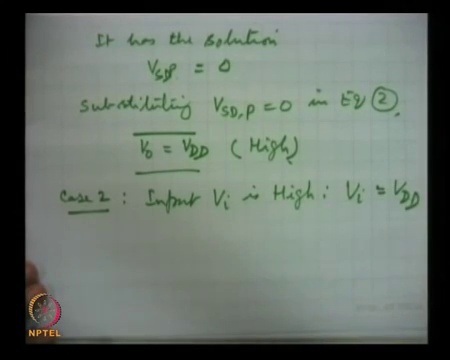 It has the solution
V_SDP = 0
Substituting V_SD,P = 0 in Eq ②,
V_0 = V_DD (High)
Case 2 : Input V_i is High : V_i = V_DD
NPTEL